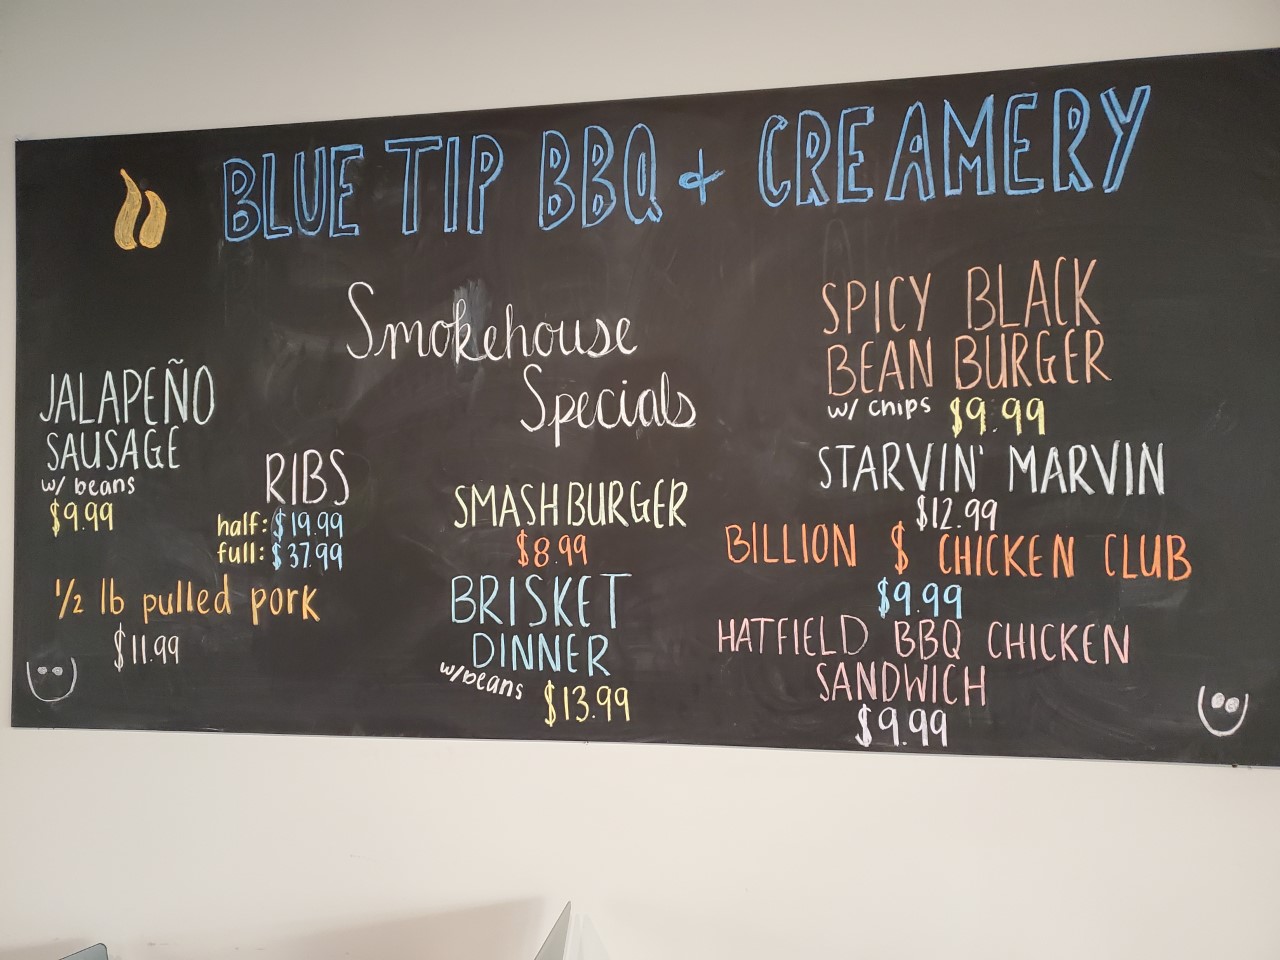 BLUE TIP BBQ & CREAMERY
Smokehouse
Specials
JALAPEÑO
SAUSAGE
w/ beans
$9.99
RIBS
half: $19.99
full: $37.99
1/2 lb pulled pork
$11.99
SMASHBURGER
$8.99
BRISKET
DINNER
w/beans $13.99
SPICY BLACK
BEAN BURGER
w/ chips $9.99
STARVIN' MARVIN
$12.99
BILLION $ CHICKEN CLUB
$9.99
HATFIELD BBQ CHICKEN
SANDWICH
$9.99